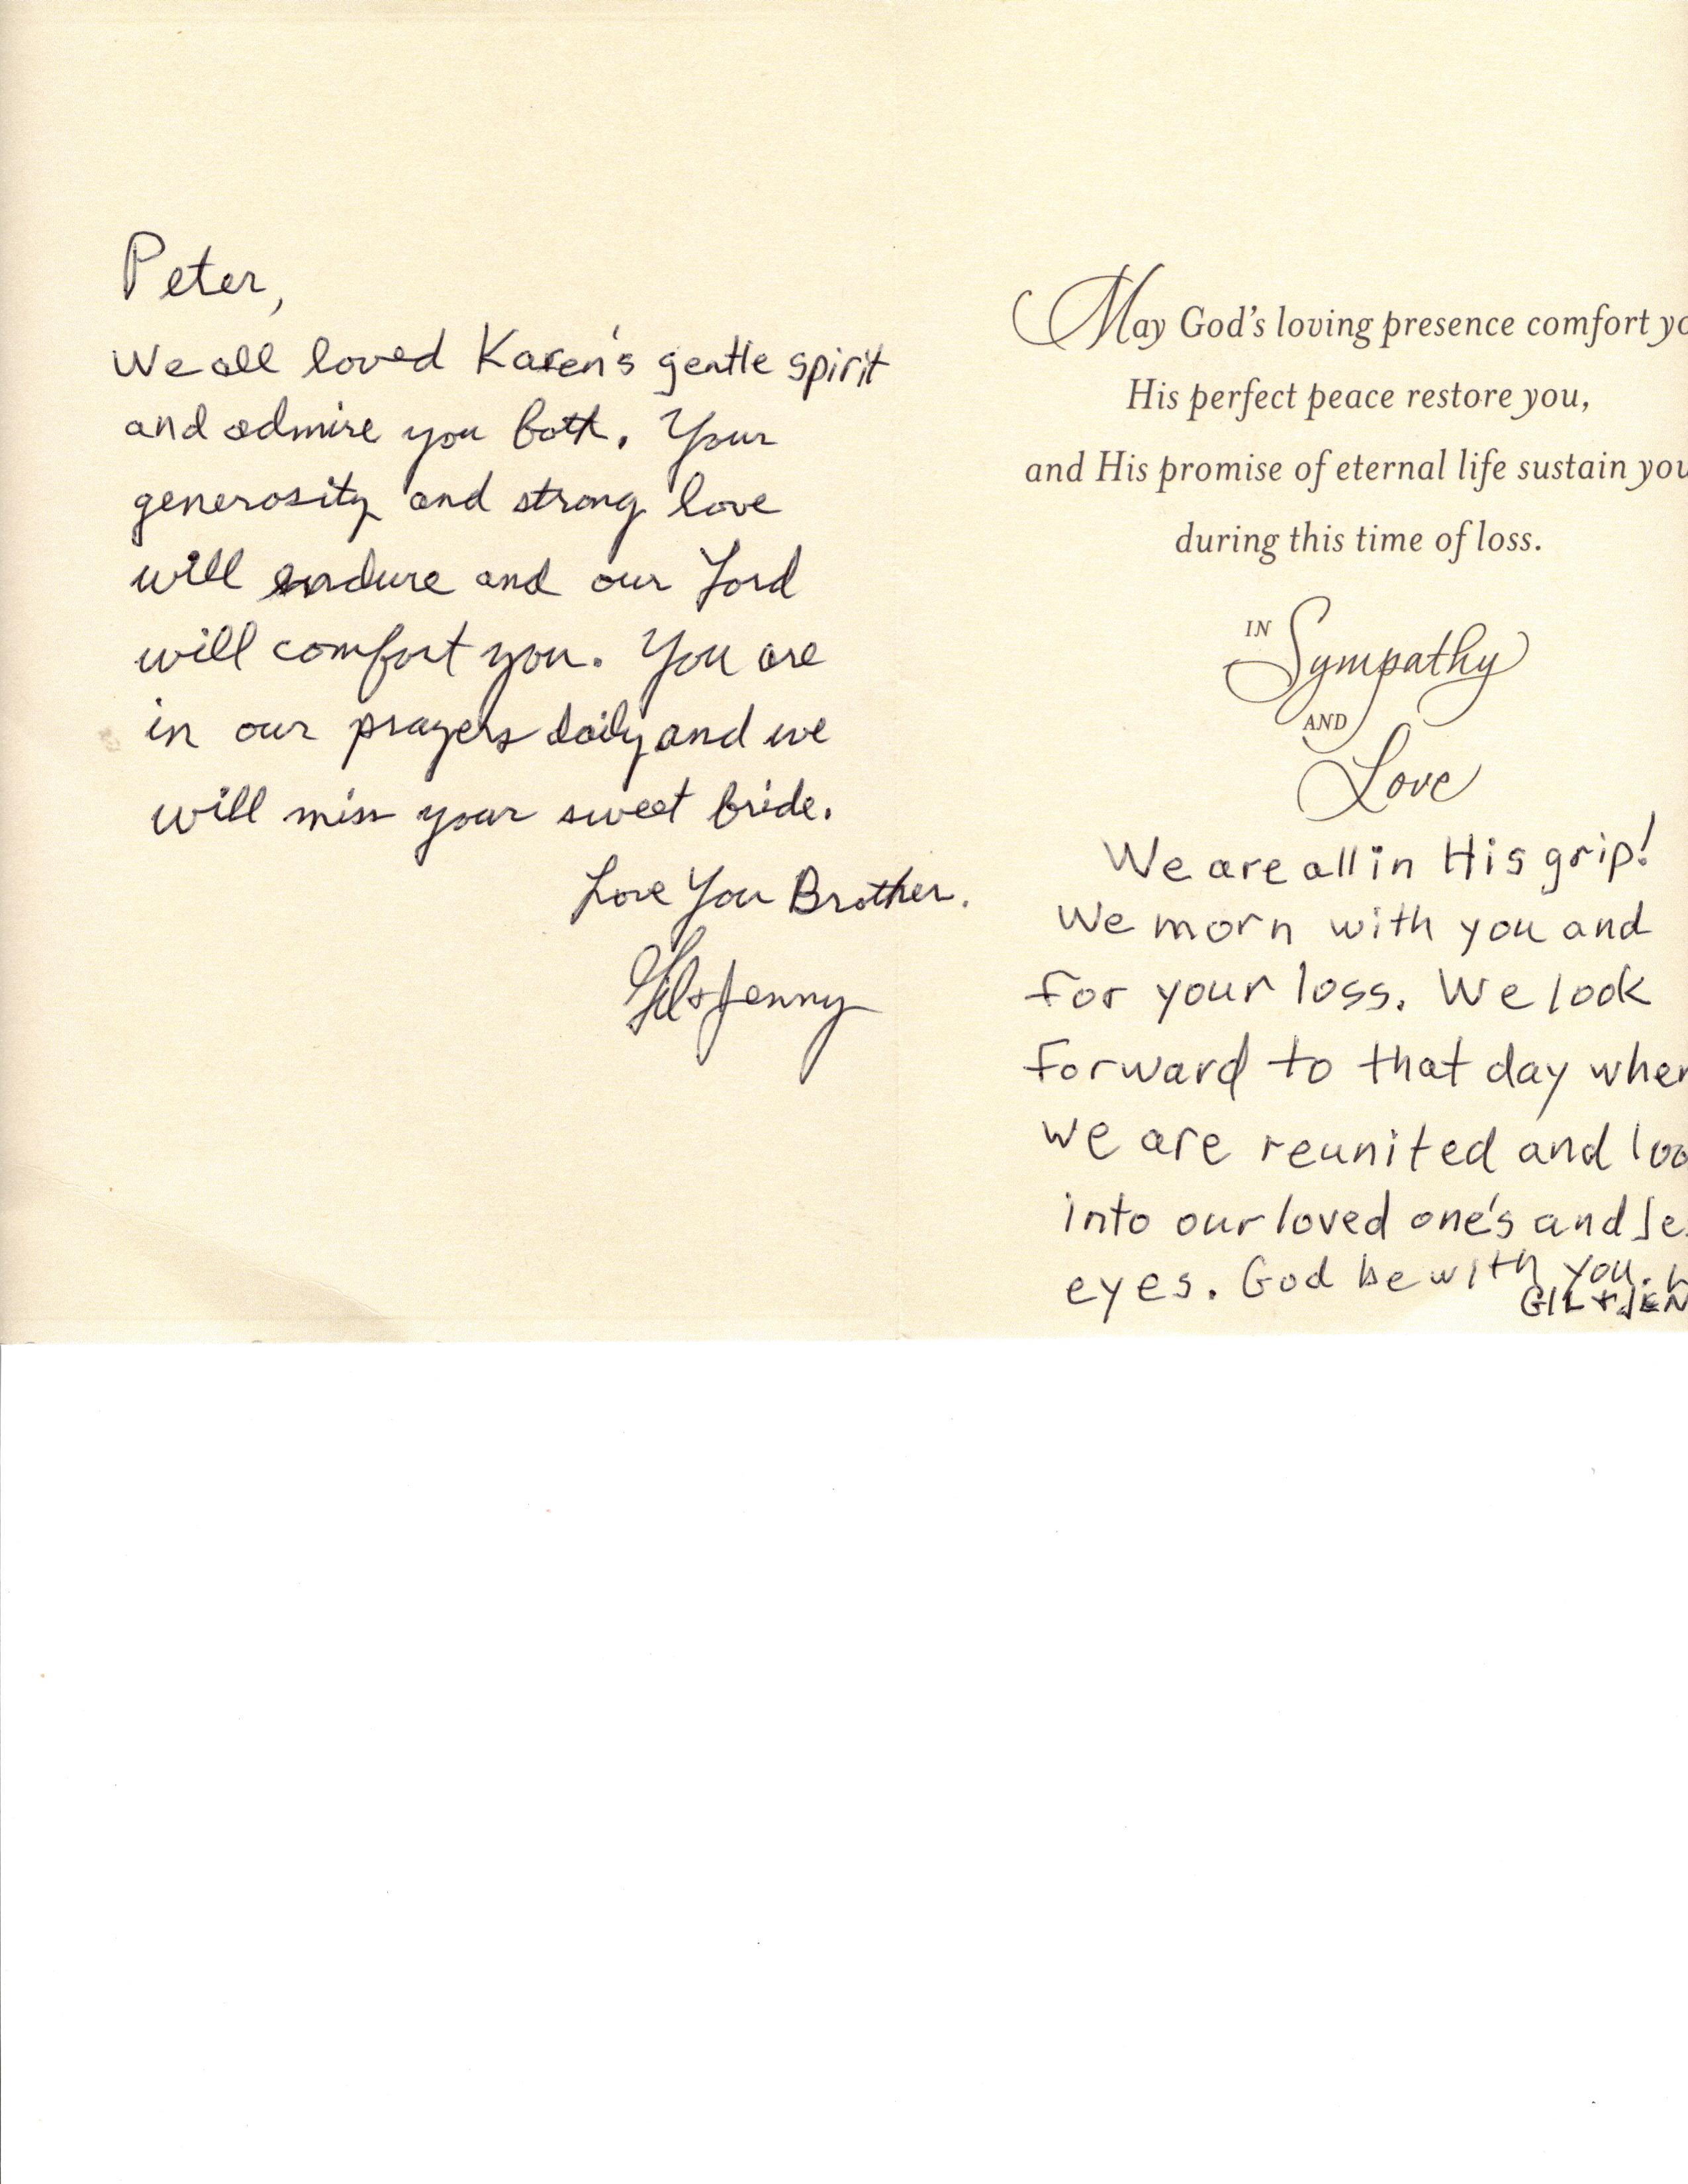 Peter,
We all loved Karen's gentle spirit
and admire you both. Your
generosity and strong love
will endure and our Lord
will comfort you. You are
in our prayers daily and we
will miss your sweet bride.
Love You Brother.
Gil & Jenny
May God's loving presence comfort yo
His perfect peace restore you,
and His promise of eternal life sustain you
during this time of loss.
IN
Sympathy
AND
Love
We are all in His grip!
We morn with you and
for your loss. We look
forward to that day when
we are reunited and loo
into our loved one's and Je
eyes. God be with you.
GIL & JEN